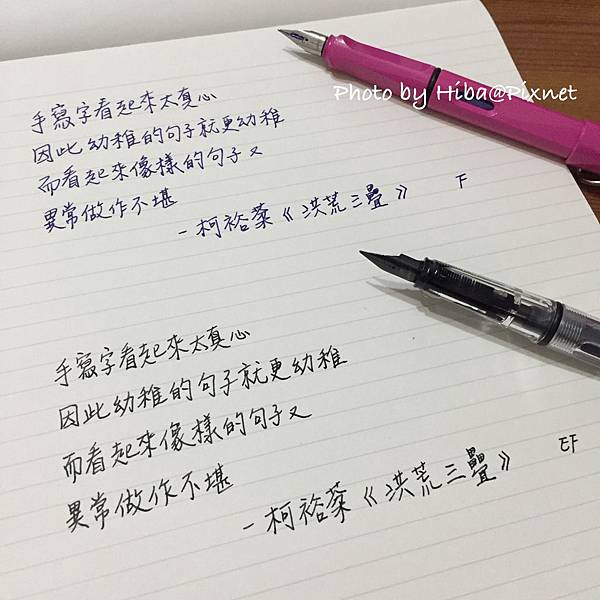 Photo by Hiba@Pixnet
手寫字看起來太真心
因此幼稚的句子就更幼稚
而看起來像樣的句子又
異常做作不堪
-柯裕棻《洪荒三疊》
F
手寫字看起來太真心
因此幼稚的句子就更幼稚
而看起來像樣的句子又
異常做作不堪
-柯裕棻《洪荒三疊》
EF